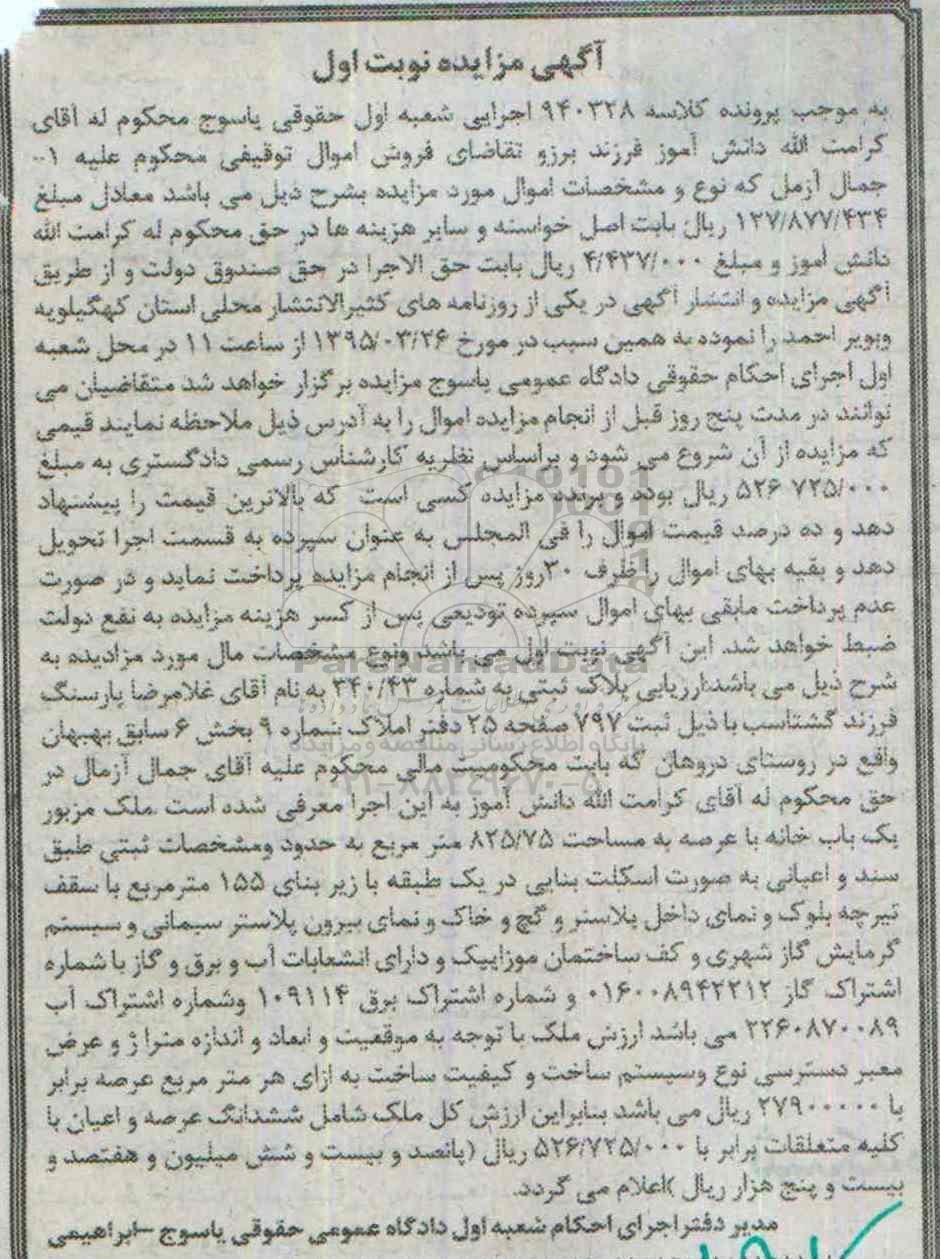 آگهی مزایده نوبت اول
به موجب پرونده کلاسه ۹۴۰۳۲۸ اجرایی شعبه اول حقوقی یاسوج محکوم له آقای
کرامت الله دانش آموز فرزند برزو تقاضای فروش اموال توقیفی محکوم علیه ۱-
جمال آزمل که نوع و مشخصات اموال مورد مزایده بشرح ذیل می باشد معادل مبلغ
۱۲۷/۸۷۷/۴۳۴ ریال بابت اصل خواسته و سایر هزینه ها در حق محکوم له کرامت الله
دانش آموز و مبلغ ۴/۴۳۷/۰۰۰ ریال بابت حق الاجرا در حق صندوق دولت و از طریق
آگهی مزایده و انتشار آگهی در یکی از روزنامه های کثیرالانتشار محلی استان کهگیلویه
وبویر احمد را نموده به همین سبب در مورخ ۱۳۹۵/۰۳/۲۶ از ساعت ۱۱ در محل شعبه
اول اجرای احکام حقوقی دادگاه عمومی یاسوج مزایده برگزار خواهد شد متقاضیان می
توانند در مدت پنج روز قبل از انجام مزایده اموال را به آدرس ذیل ملاحظه نمایند قیمی
که مزایده از آن شروع می شود و براساس نظریه کارشناس رسمی دادگستری به مبلغ
۵۲۶ ۷۲۵/۰۰۰ ریال بوده و برنده مزایده کسی است که بالاترین قیمت را پیشنهاد
دهد و ده درصد قیمت اموال را فی المجلس به عنوان سپرده به قسمت اجرا تحویل
دهد و بقیه بهای اموال را ظرف ۳۰روز پس از انجام مزایده پرداخت نماید و در صورت
عدم پرداخت مابقی بهای اموال سپرده تودیعی پس از کسر هزینه مزایده به نفع دولت
ضبط خواهد شد. این آگهی نوبت اول می باشد ونوع مشخصات مال مورد مزادیده به
شرح ذیل می باشد:ارزیابی پلاک ثبتی به شماره ۳۴۰/۴۳ به نام آقای غلامرضا پارسنگ
فرزند گشتاسب با ذیل ثبت ۷۹۷ صفحه ۲۵ دفتر املاک شماره ۹ بخش ۶ سابق بهبهان
واقع در روستای دروهان که بابت محکومیت مالی محکوم علیه آقای جمال آزمال در
حق محکوم له آقای کرامت الله دانش آموز به این اجرا معرفی شده است .ملک مزبور
یک باب خانه با عرصه به مساحت ۸۲۵/۷۵ متر مربع به حدود ومشخصات ثبتی طبق
سند و اعیانی به صورت اسکلت بنایی در یک طبقه با زیر بنای ۱۵۵ مترمربع با سقف
تیرچه بلوک و نمای داخل پلاستر و گچ و خاک و نمای بیرون پلاستر سیمانی و سیستم
گرمایش گاز شهری و کف ساختمان موزاییک و دارای انشعابات آب و برق و گاز با شماره
اشتراک گاز ۰۱۶۰۰۸۹۴۲۲۱۲ و شماره اشتراک برق ۱۰۹۱۱۴ وشماره اشتراک آب
۲۲۶۰۸۷۰۰۸۹ می باشد ارزش ملک با توجه به موقعیت و ابعاد و اندازه متراژ و عرض
معبر دسترسی نوع وسیستم ساخت و کیفیت ساخت به ازای هر متر مربع عرصه برابر
با ۲۷۹۰۰۰۰۰ ریال می باشد بنابراین ارزش کل ملک شامل ششدانگ عرصه و اعیان با
کلیه متعلقات برابر با ۵۲۶/۷۲۵/۰۰۰ ریال (پانصد و بیست و شش میلیون و هفتصد و
بیست و پنج هزار ریال )اعلام می گردد.
مدیر دفتر اجرای احکام شعبه اول دادگاه عمومی حقوقی یاسوج -ابراهیمی
ParsNamadData
پایگاه اطلاع رسانی مناقصه و مزایده
۰۲۱-۸۸۳۴۹۶۷۰-۵